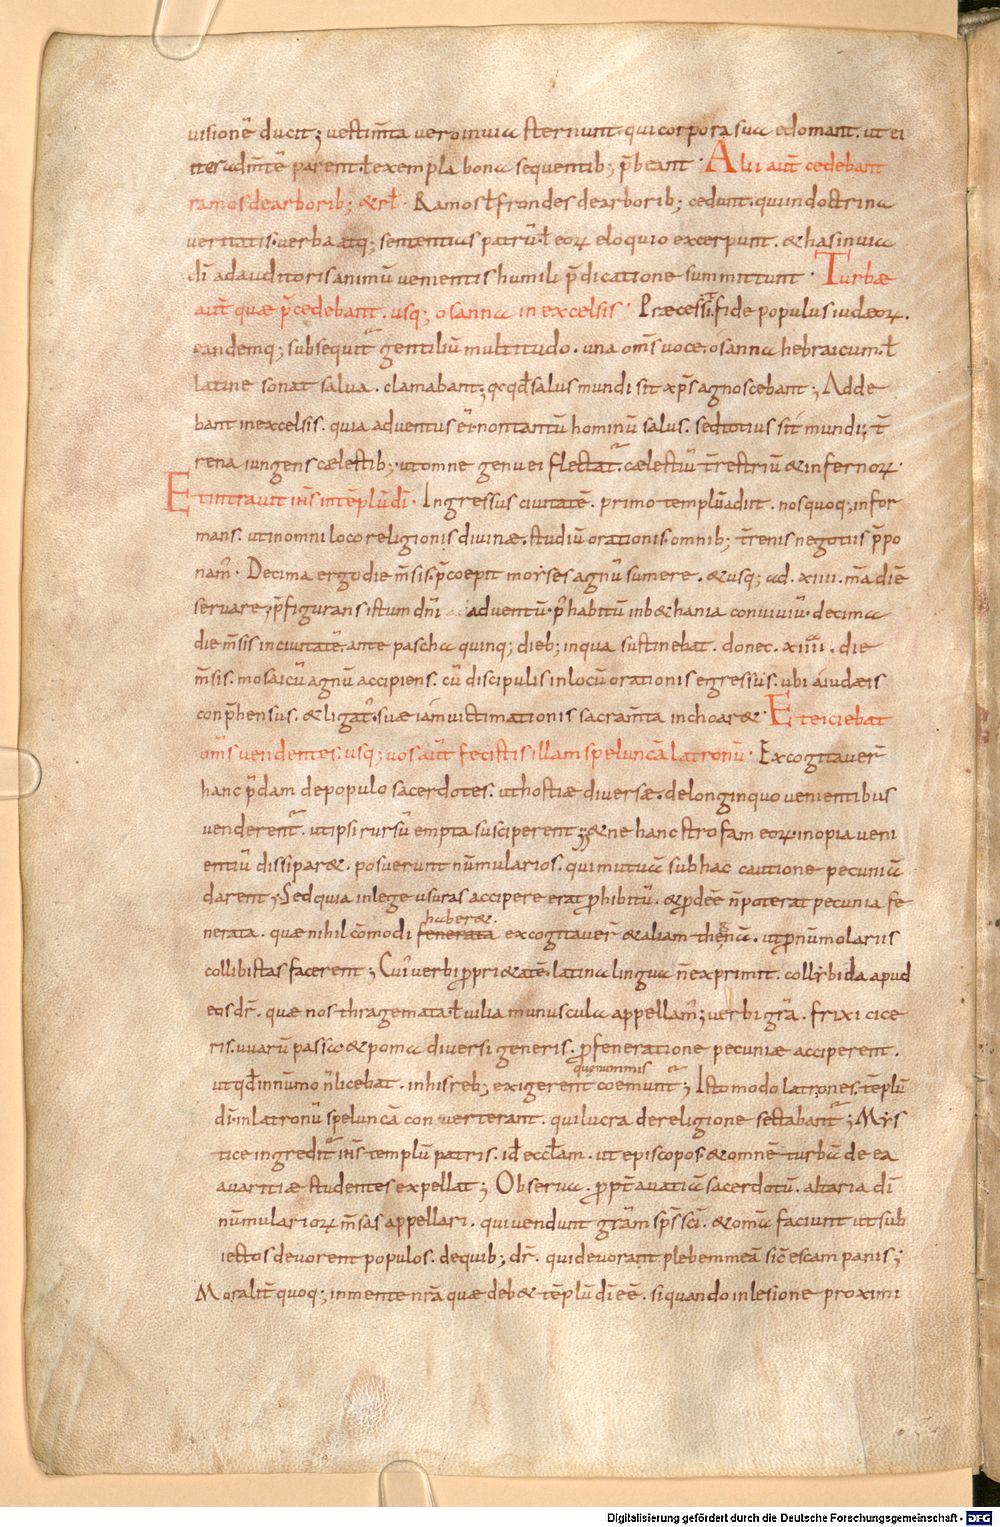 visionē ducit; vestim̄ta vero in via sternunt. qui corpora sua edomant. ut ei
iter ad m̄tē parent. ł exempla bona sequentib; p̄beant. Alii aut̄ cedebant
ramos de arborib; & rł. Ramos ł frondes de arborib; cedunt. qui in doctrina
veritatis. verba atq; sententias patrū. ł eoꝝ eloquio excerpunt. & has in via
dī ad auditoris animū venientis humili p̄dicatione summittunt. Turbae
aut̄ quae p̄cedebant. usq; osanna in excelsis. Praecessit fide populus iudaeoꝝ.
eandemq; subsequit̄ gentiliū multitudo. una om̄s voce. osanna hebraicum. ł
latine sonat salva. clamabant; q̄a qd̄ salus mundi sit xp̄s agnoscebant; Adde
bant in excelsis. quia adventus ei' non tantū hominū salus. sed totius sit mundi; t̄
rena iungens caelestib; ut omne genu ei flectat̄. caelestiū t̄restriū & infernoꝝ.
Et intravit ih̄s in tēplū dī. Ingressus civitatē. primo templū adiit. nos quoq; infor
mans. ut in omni loco religionis divinae. studiū orationis. omnib; t̄renis negotiis p̄po
nam̄. Decima ergo die m̄sis. p̄coepit moyses agnū sumere. & usq; ad. xiiii. m̄a diē
servare; p̄figurans istum dn̄i adventū. p' habitū in b&hania conviviū. decima
die m̄sis in civitatē. ante pascha quinq; dieb; in qua sustinebat. donec. xiiii. die
m̄sis. mosaicū agnū accipiens. cū discipulis in locū orationis egressus. ubi a iudaeis
conp̄hensus. & ligat̄. suae iam victimationis sacram̄ta inchoar&. Et eiciebat
om̄s vendentes. usq; vos aut̄ fecistis illam speluncā latronū. Excogitaver̄
hanc p̄dam de populo sacerdotes. ut hostiae diversae. de longinquo venientibus
venderent̄. ut ipsi rursū empta susciperent; & ne hanc strofam eoꝝ inopia veni
entiū dissipar&. posuerunt nūmularios. qui mutuā sub hac cautione pecuniā
darent; Sed quia in lege usuras accipere erat p̄hibitū. & p̄dēē n̄ poterat pecunia fe
haber&.
nerata. quae nihil cōmodi fenerata excogitaver̄ & aliam thēnā. ut p̄ nūmolariis
collibistas facerent; Cui' verbi p̄pri&atē. latina lingua n̄ exprimit. collybida apud
eos dr̄. quae nos thragemata. ł vilia munuscula appellam̄; verbi gr̄a. frixi cice
ris. uvarū passa & poma diversi generis. p̄ feneratione pecuniae acciperent.
quae nummis
ut qd̄ in nūmo n̄ licebat. in his reb; exigerent coemunt̄; Isto modo latrones. tēplū
dī. in latronū speluncā converterant. qui lucra de religione sectabant̄; Mys
tice ingredit̄ ih̄s templū patris. id̄ eccłam. ut episcopos & omnē turbā de ea
avaritiae studentes expellat; Observa. p̄pt̄ avatiā sacerdotū. altaria dī
nūmularioꝝ m̄sas appellari. qui vendunt gr̄am sp̄s sc̄i. & omā faciunt ut sub
iectos devorent populos. de quib; dr̄. qui devorant plebem meā sic̄ escam panis;
Moralit̄ quoq; in mente nr̄a quae deb& tēplū dī ēē. si quando in lesione proximi
Digitalisierung gefördert durch die Deutsche Forschungsgemeinschaft - DFG